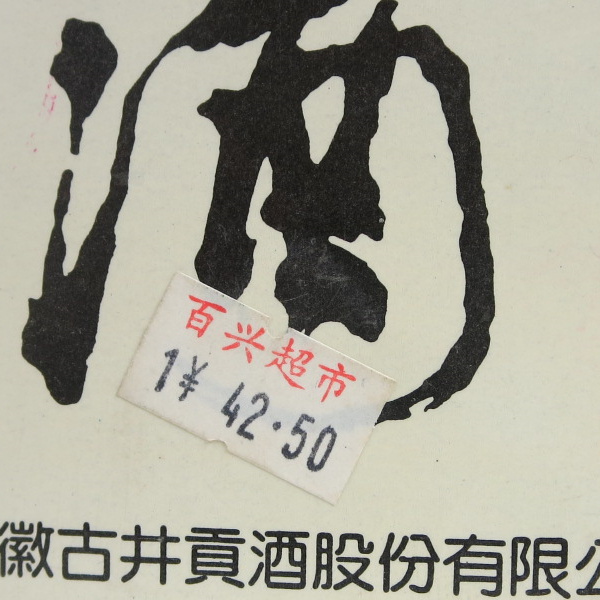 酒
百兴超市
1¥ 42.50
徽古井貢酒股份有限公